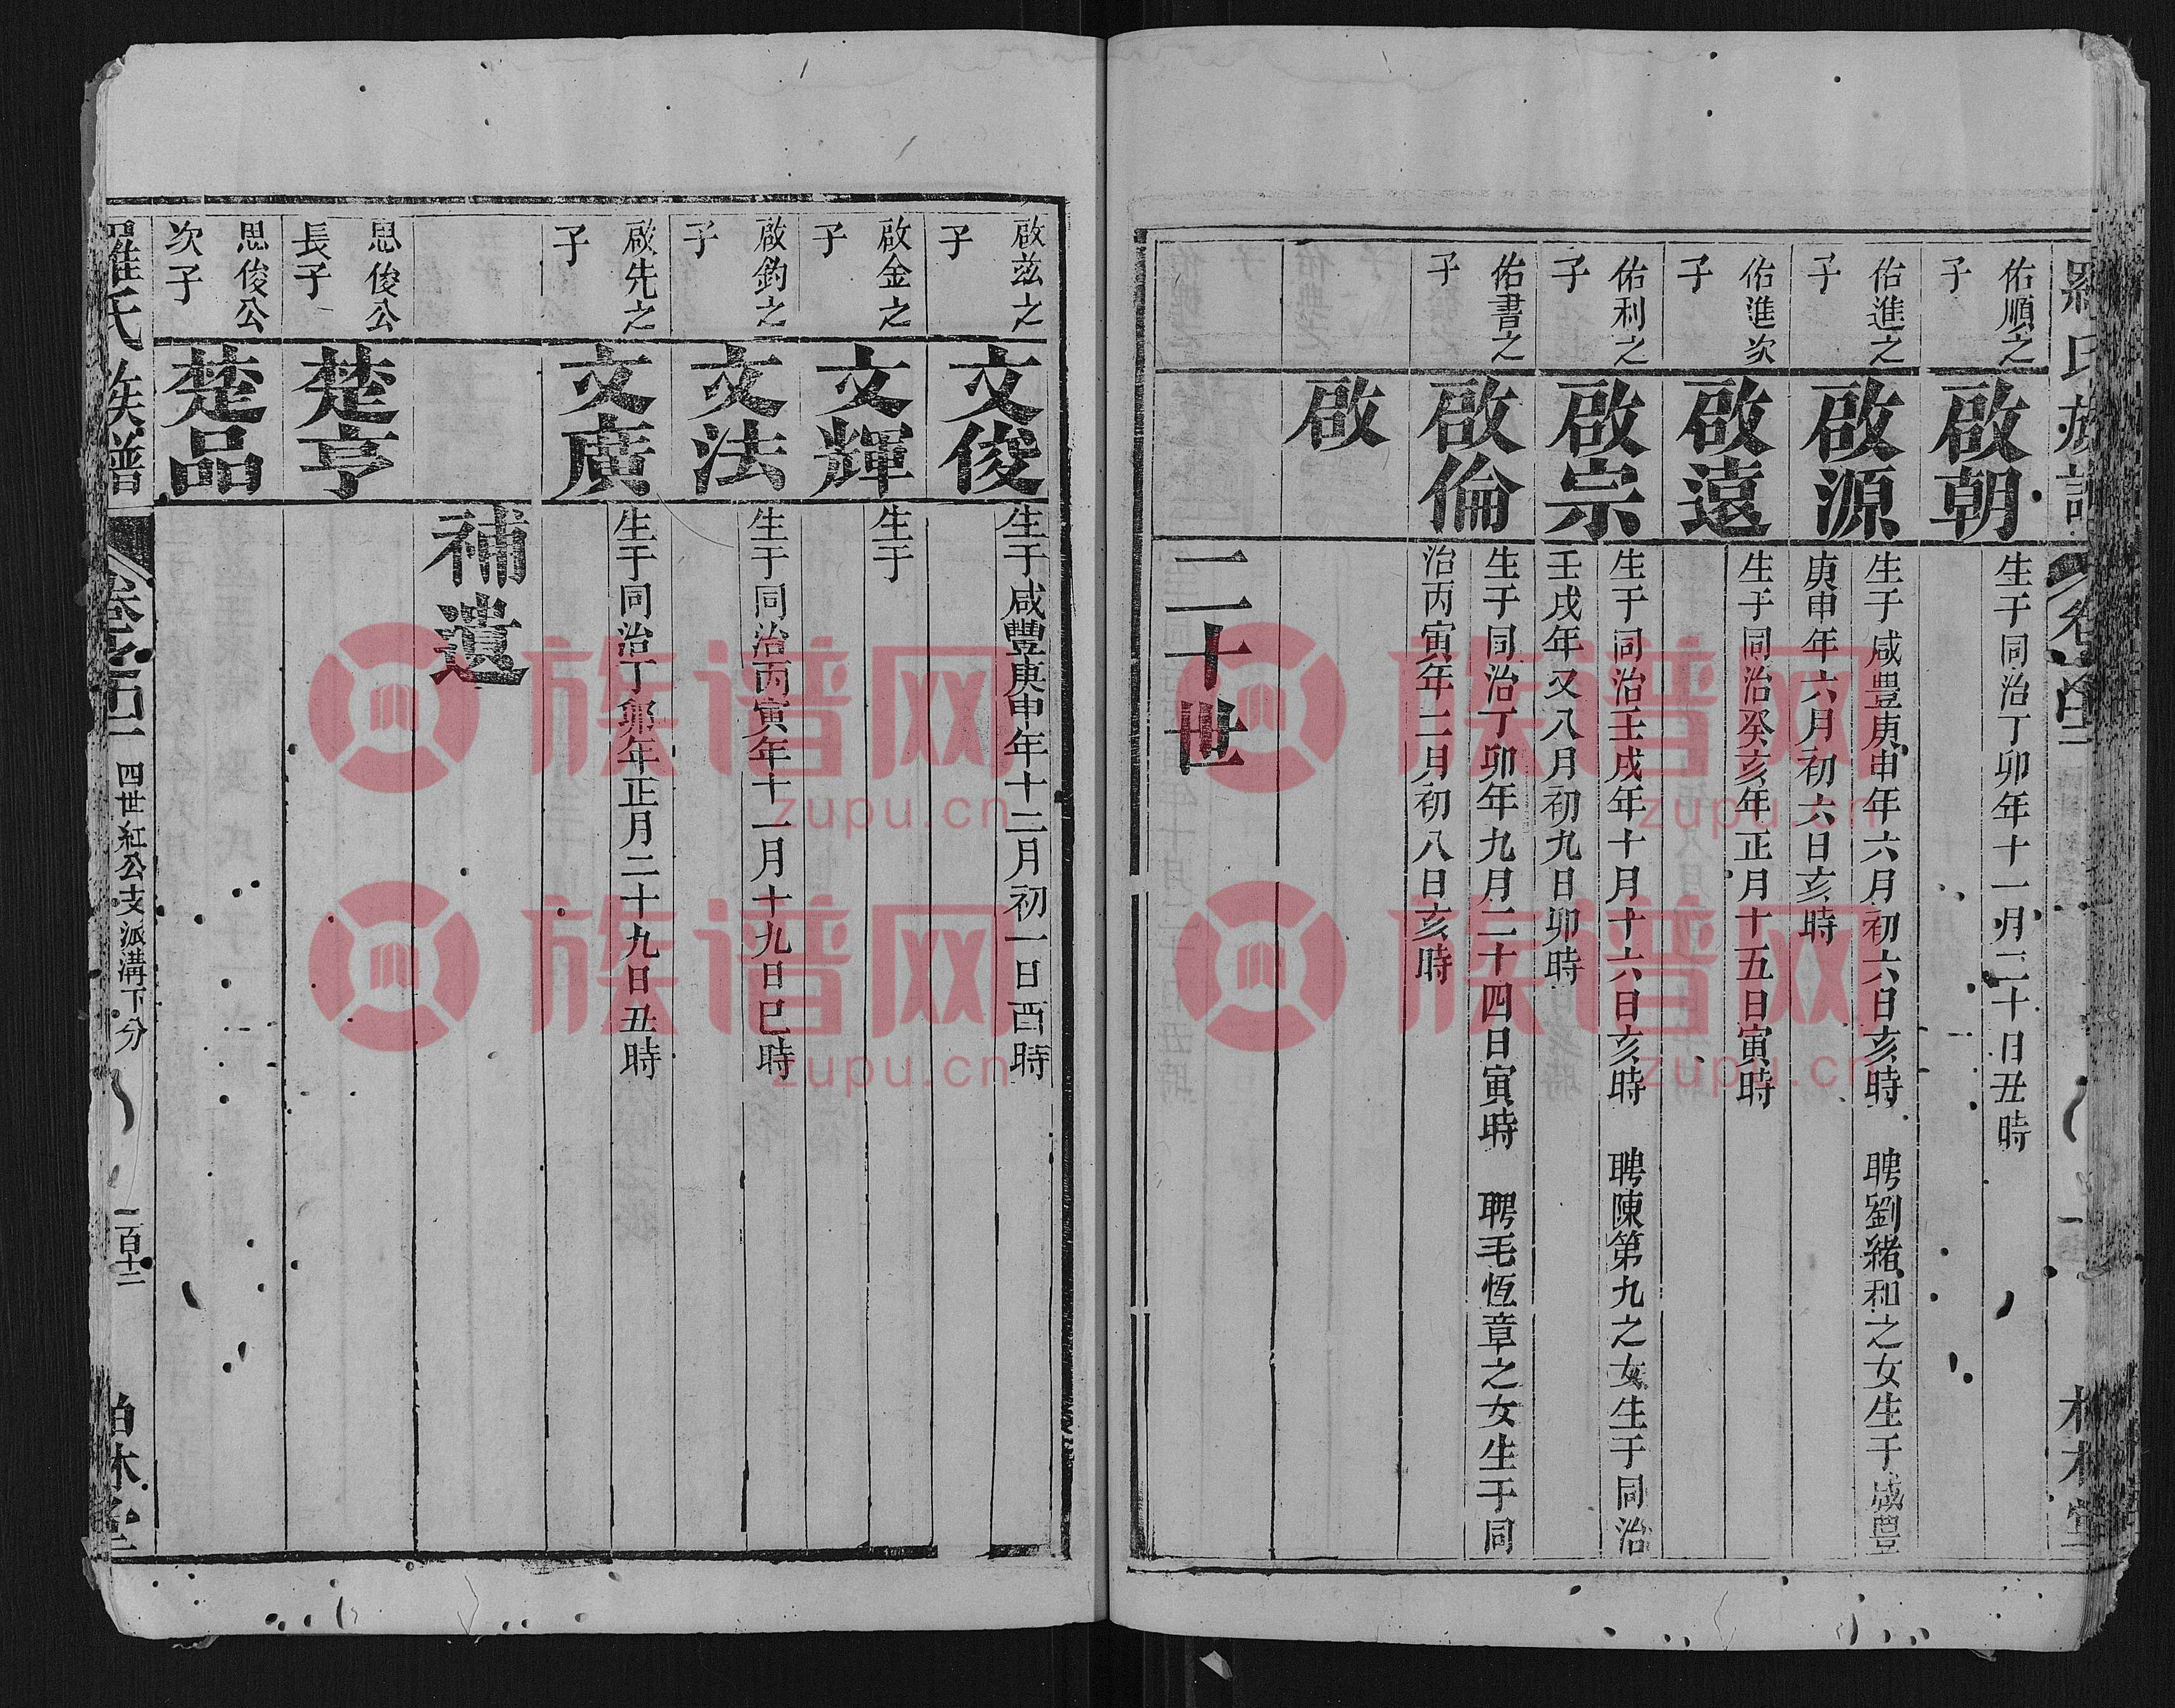 佑順之
子
啟朝
生于同治丁卯年十一月二十日丑時
佑進之
子
啟源
生于咸豊庚申年六月初六日亥時 聘劉緒和之女生于咸豊
庚申年六月初六日亥時
佑進次
子
啟遠
生于同治癸亥年正月十五日寅時
佑利之
子
啟宗
生于同治壬戌年十月十六日亥時 聘陳第九之女生于同治
壬戌年又八月初九日卯時
佑書之
子
啟倫
生于同治丁卯年九月二十四日寅時 聘毛恆章之女生于同
治丙寅年二月初八日亥時
啟
二十世
啟茲之
子
文俊
生于咸豐庚申年十二月初一日酉時
啟金之
子
文輝
生于
啟鈞之
子
文法
生于同治丙寅年十一月十九日巳時
啟先之
子
文廣
生于同治丁卯年正月二十九日丑時
補遺
思俊公
長子
楚亨
思俊公
次子
楚品
羅氏族譜
四世紅公支派溝下分
二百十二
柏林堂
族谱网
zupu.cn
族谱网
zupu.cn
族谱网
zupu.cn
族谱网
zupu.cn